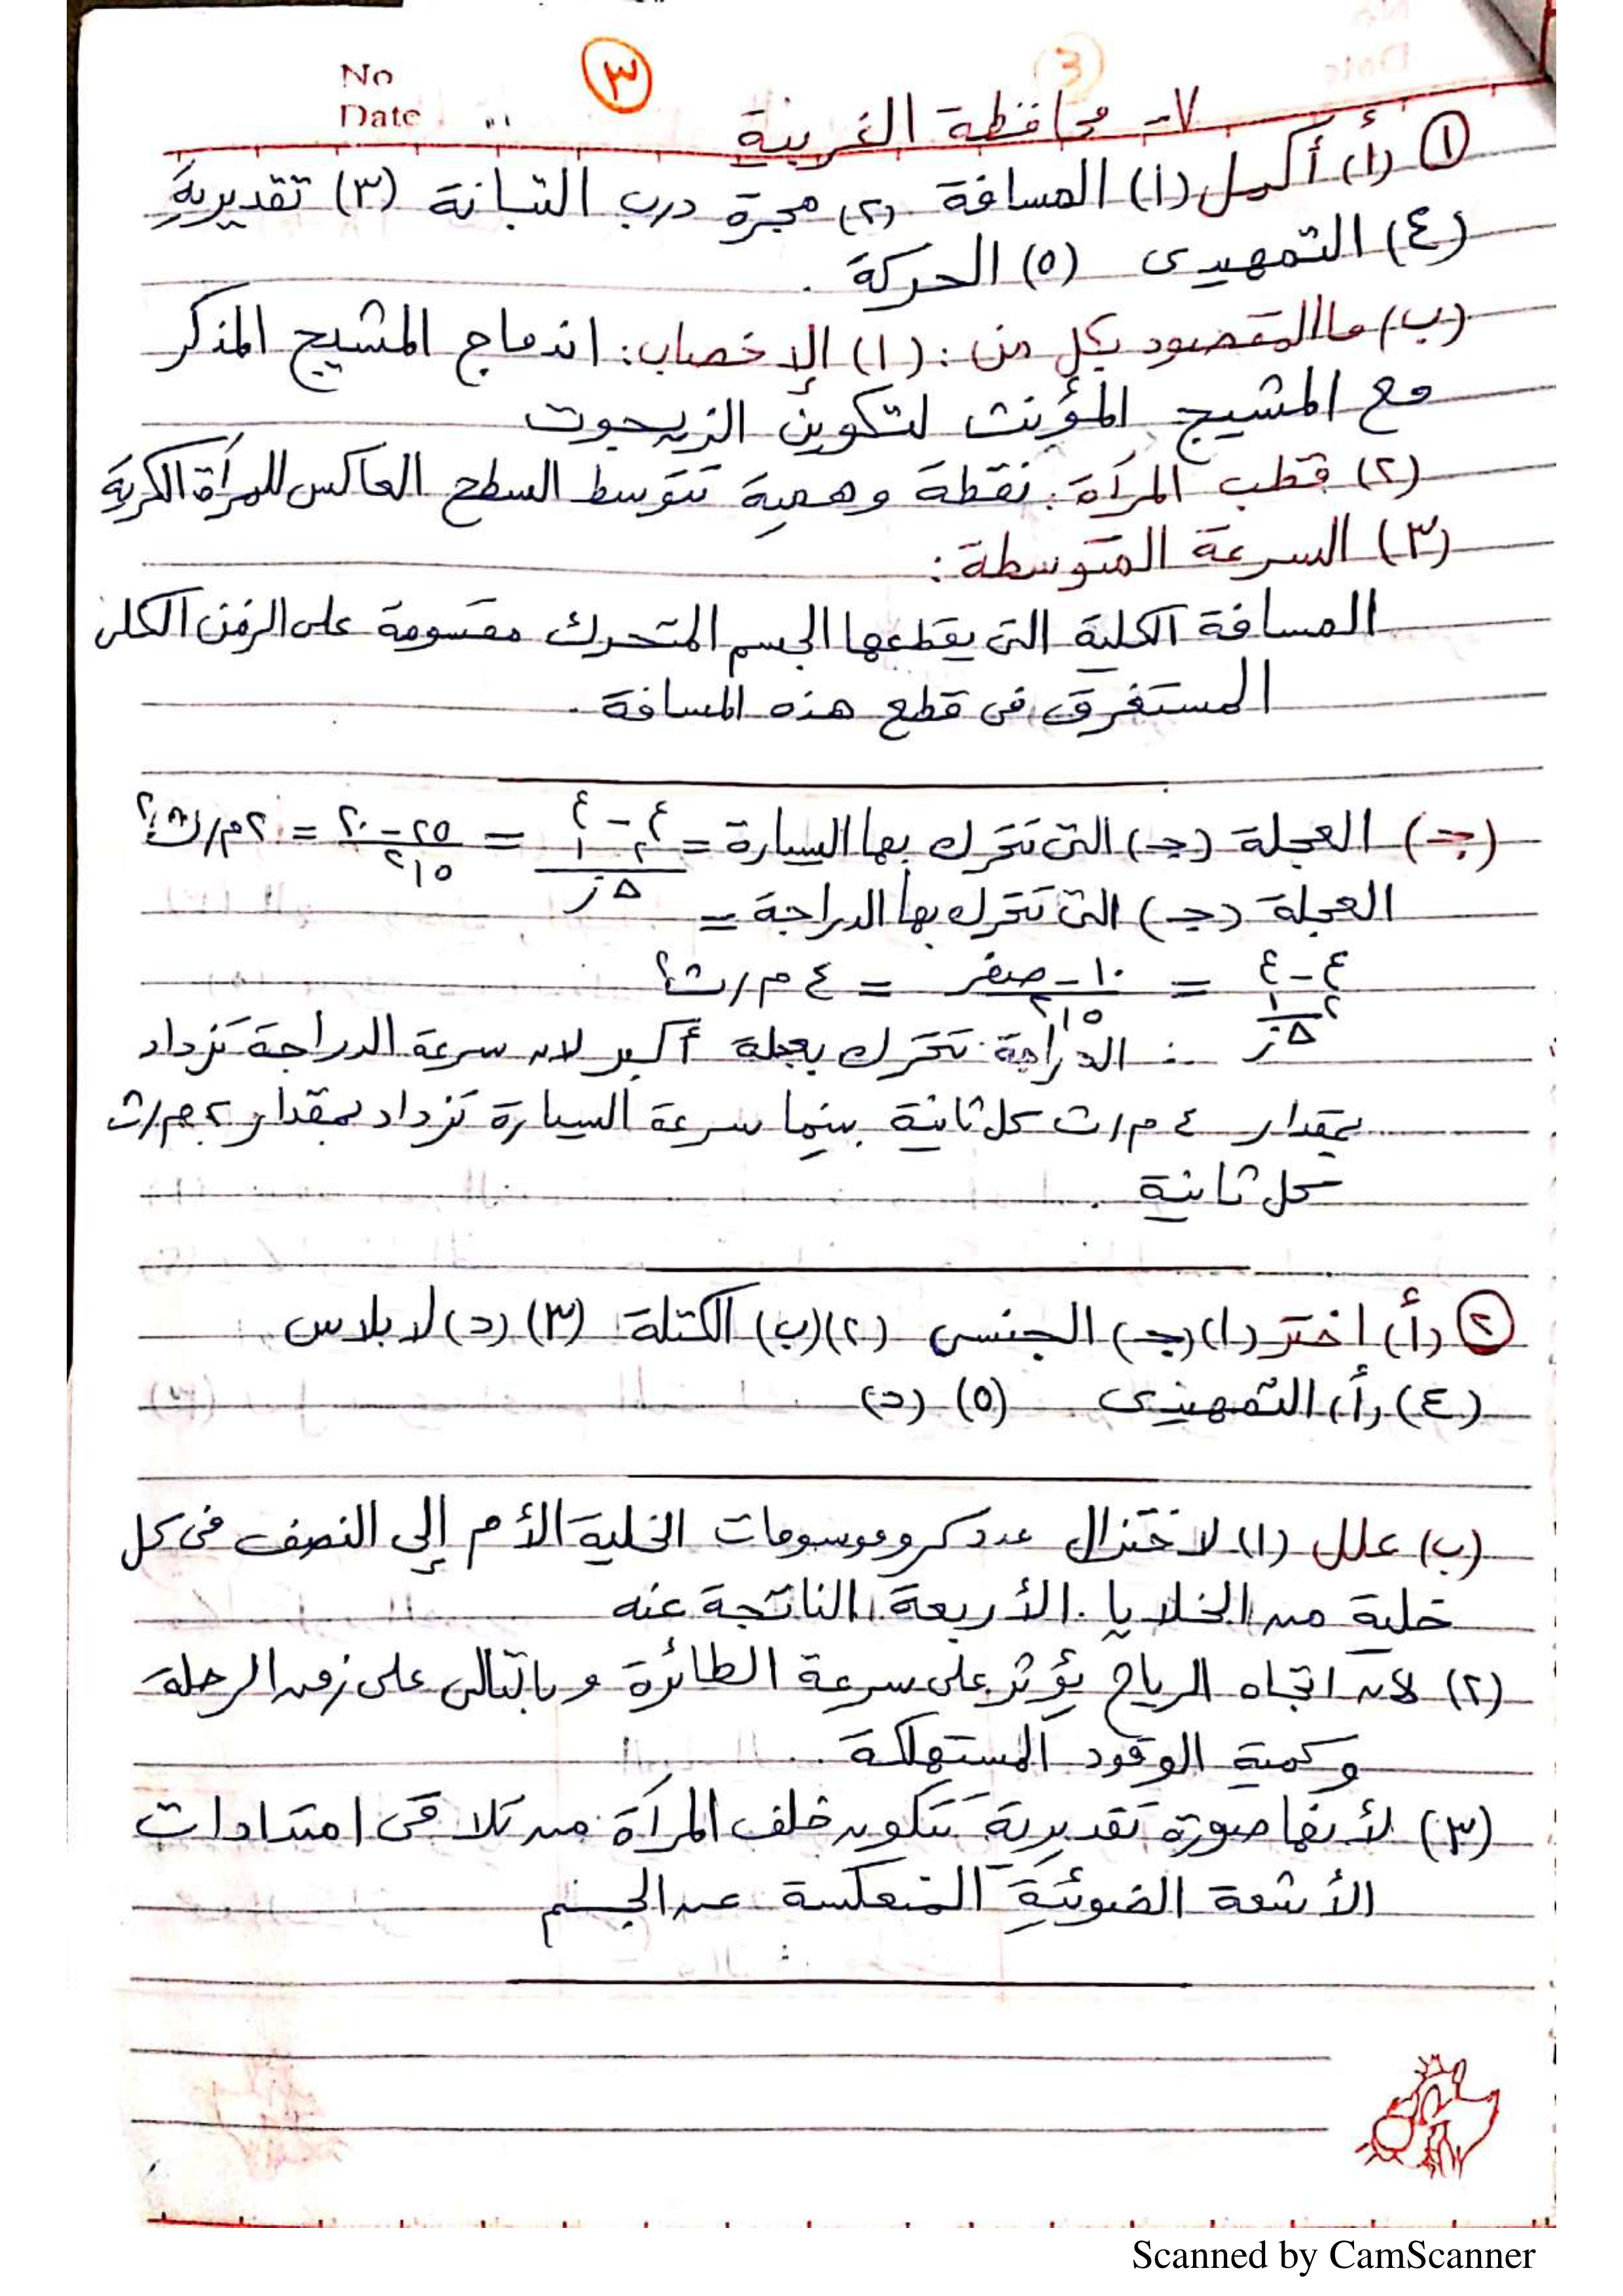 No
Date
٣
٧- محافظة الغربية
١ (أ) أكمل (١) المسافة (٢) مجرة درب التبانة (٣) تقديرية
(٤) التمهيدى (٥) الحركة .
(ب) ما المقصود بكل من : (١) الإخصاب : اندماج المشيج المذكر
مع المشيج المؤنث لتكوين الزيجوت
(٢) قطب المرآة : نقطة وهمية تتوسط السطح العاكس للمرآة الكرية
(٣) السرعة المتوسطة :
المسافة الكلية التى يقطعها الجسم المتحرك مقسومة على الزمن الكلى
المستغرق فى قطع هذه المسافة .
(جـ) العجلة (جـ) التى تتحرك بها السيارة = (ع٢ - ع١) / Δز = (٢٥ - ٢٠) / ٢,٥ = ٢ م/ث٢
العجلة (جـ) التى تتحرك بها الدراجة =
(ع٢ - ع١) / Δز = (١٠ - صفر) / ٢,٥ = ٤ م/ث٢
∴ الدراجة تتحرك بعجلة أكبر لأن سرعة الدراجة تزداد
بمقدار ٤ م/ث كل ثانية بينما سرعة السيارة تزداد بمقدار ٢ م/ث
كل ثانية .
٢ (أ) اختر (١) (جـ) الجنسى (٢) (ب) الكتلة (٣) (د) لابلاس
(٤) (أ) التمهيدى (٥) (د)
(ب) علل (١) لاختزال عدد كروموسومات الخلية الأم إلى النصف فى كل
خلية من الخلايا الأربعة الناتجة عنه
(٢) لأن اتجاه الرياح يؤثر على سرعة الطائرة وبالتالى على زمن الرحلة
وكمية الوقود المستهلكة
(٣) لأنها صورة تقديرية تتكون خلف المرآة من تلاقى امتدادات
الأشعة الضوئية المنعكسة عن الجسم
Scanned by CamScanner